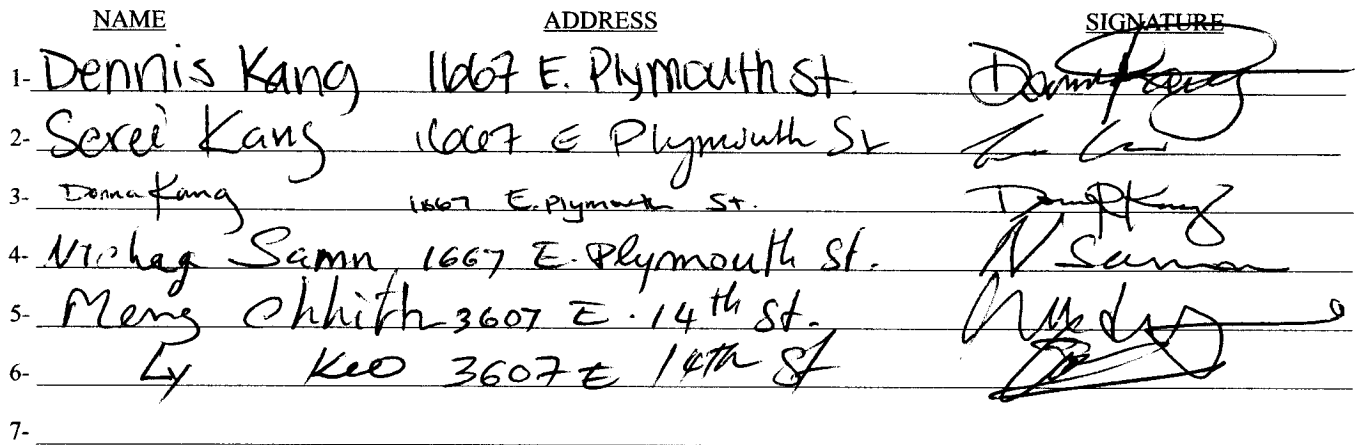 NAME ADDRESS SIGNATURE
1- Dennis Kang 1667 E. Plymouth St.
2- Serei Kang 1667 E Plymouth St
3- Donna Kang 1667 E. Plymouth St.
4- Samn 1667 E. Plymouth St. N Samn
5- Meng Chhith 3607 E. 14th St.
6- Ly Keo 3607 E 14th St
7-